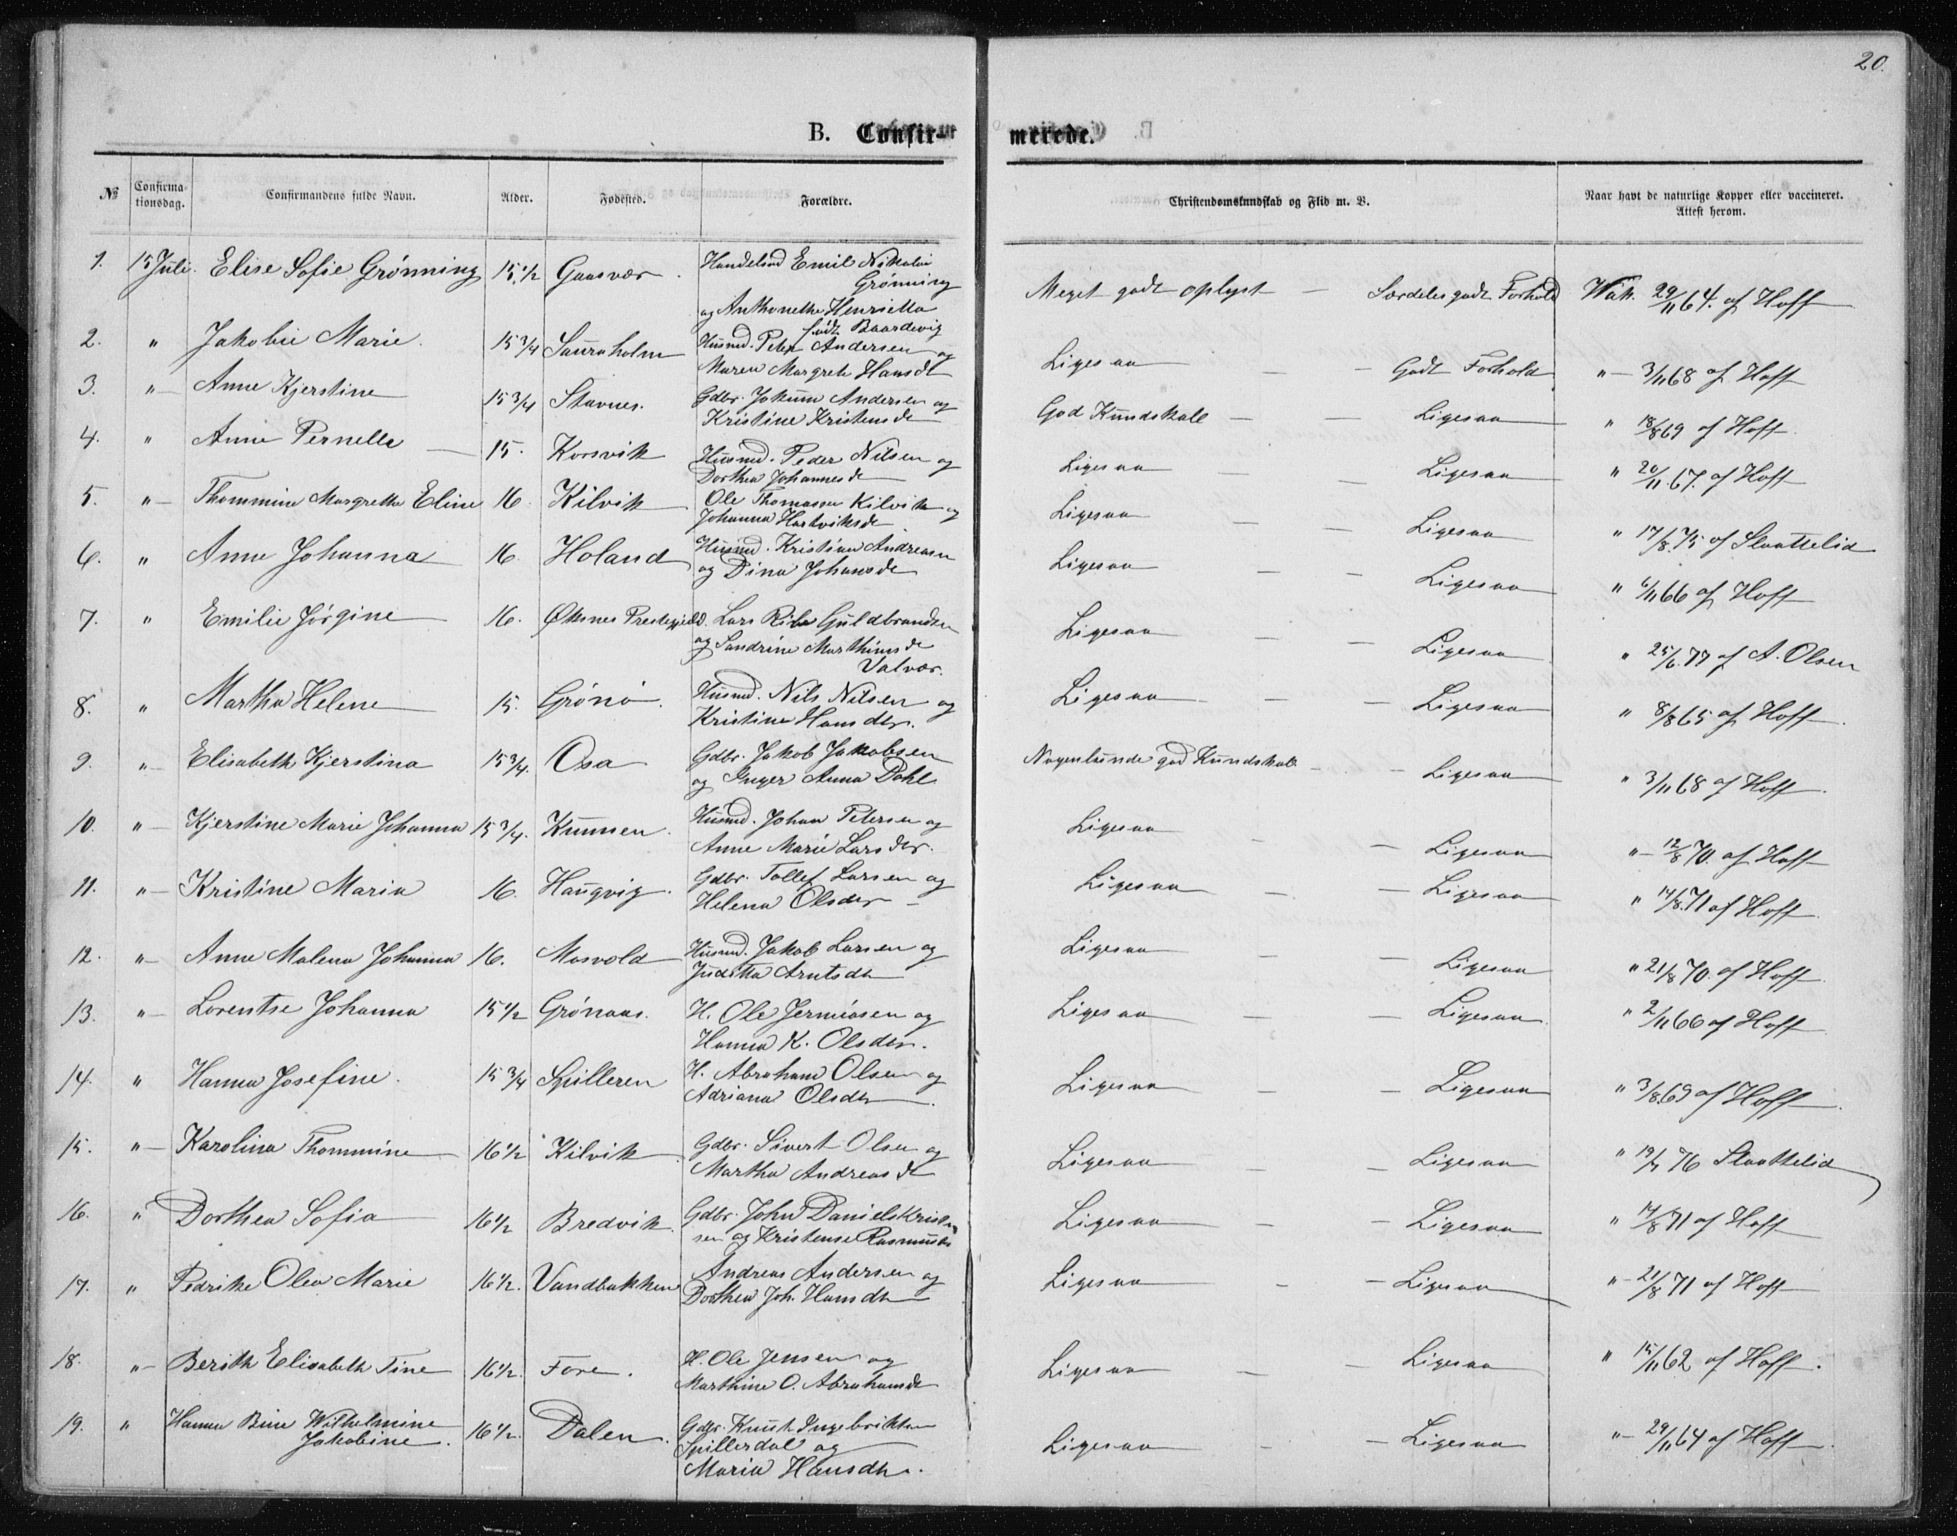 20.
B. Confir-
merede.
№
Confirma-
tionsdag.
Confirmandens fulde Navn.
Alder.
Fødested.
Forældre.
Christendomskundskab og Flid m. V.
Naar havt de naturlige Kopper eller vaccineret.
Attest herom.
1. 15 Juli. Elise Sofie Grønning 15 1/2 Gaasvær. Handelsmd Emil Nikolai
Grønning
og Anthonette Henrietta
født Baardevig
Meget godt oplyst — Særdeles godt Forhold Vak. 29/11 64. af Hoff
2. " Jakobie Marie. 15 3/4 Sauraholm Husmd. Peter Andersen og
Maren Margrete Hansdt
Ligesaa — — Godt Forhold " 3/11 68 af Hoff
3. " Anne Kjerstine 15 3/4 Stavnes. Gdbr. Jokum Andersen og
Kristine Kristensdt
God Kundskab — — Ligesaa " 18/8 69 af Hoff
4. " Anne Pernelle 15. Korsvik Husmd. Peder Nilsen og
Dorthea Johannesdt
Ligesaa — Ligesaa " 20/11 67. af Hoff
5. " Thommine Margrethe Eline 16. Kilvik Ole Thomassen Kilvik og
Johanna Hartviksdt
Ligesaa — — Ligesaa " 17/8 75 af Slaattelid
6. " Anne Johanna 16. Holand Husmd. Kristian Andreasen
og Dina Johansdt
Ligesaa — — Ligesaa " 6/11 66 af Hoff
7. " Emilie Jørgine 16. Øksnes Prestegjeld. Lars Guldbrandsen
og Sandrine Marthinsdt
Valvær.
Ligesaa — — Ligesaa " 25/6 77 af A. Olsen
8. " Martha Helene 15. Grønø. Husmd. Nils Nilsen og
Kristine Hansdtr.
Ligesaa — — Ligesaa " 8/8 65 af Hoff
9. " Elisabeth Kjerstina 15 3/4. Osa Gdbr. Jakob Jakobsen
og Inger Anna Dahl
Nogenlunde god Kundskab — — Ligesaa " 3/11 68 af Hoff.
10. " Kjerstine Marie Johanna 15 3/4. Kunnen. Husmd. Johan Petersen og
Anne Marie Larsdtr.
Ligesaa — Ligesaa " 12/8 70. af Hoff
11. " Kristine Maria 16. Haugvig. Gdbr. Tollef Larsen og
Helena Olsdtr
Ligesaa — — Ligesaa " 14/8. 71 af Hoff
12. " Anne Malena Johanna 16. Mosvold Husmd. Jakob Larsen og
Juditha Arntsdtr
Ligesaa — — Ligesaa " 21/8 70. af Hoff
13. " Lorentse Johanna 15 1/2 Grønaas. H. Ole Jermiasen og
Hanna K. Olsdtr.
Ligesaa — — Ligesaa " 2/11 66 af Hoff
14. " Hanna Josefine. 15 3/4 Spilleren H. Abraham Olsen og
Adriana Olsdtr
Ligesaa — — Ligesaa " 3/8. 69 af Hoff.
15. " Karolina Thommine 16 1/2 Kilvik Gdbr. Sivert Olsen og
Martha Andreasdt
Ligesaa — Ligesaa " 19/7 76 Slaattelid
16. " Dorthea Sofia 16 1/2 Bredvik. Gdbr. John Daniel Kristen
sen og Kristense Rasmusdt
Ligesaa — — Ligesaa " 14/8 71 af Hoff
17. " Pedrike Olea Marie 16 1/2. Vandbakken Andreas Andersen og
Dorthea Joh. Hansdtr
Ligesaa — — Ligesaa " 21/8 71 af Hoff
18. " Berith Elisabeth Tine 16 1/2. Fore. H. Ole Jensen og
Marthine O. Abrahamsdt
Ligesaa — — Ligesaa " 15/11 62 af Hoff.
19. " Hanna Wilhelmine
Jakobine. 16 1/2. Dalen. Gdbr. Knut Ingebriktsen
Spillerdal og
Maria Hansdtr.
Ligesaa — — Ligesaa " 29/11 64 af Hoff.